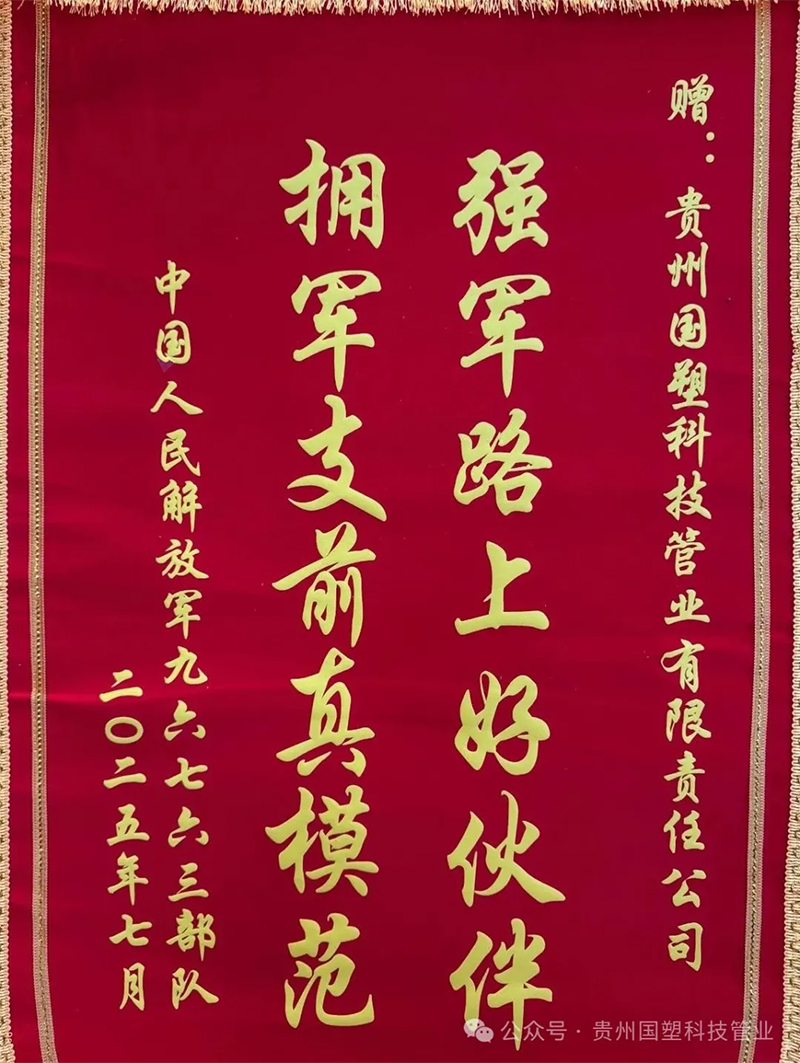 赠：贵州国塑科技管业有限责任公司
强军路上好伙伴
拥军支前真模范
中国人民解放军九六七六三部队
二〇二五年七月
公众号·贵州国塑科技管业